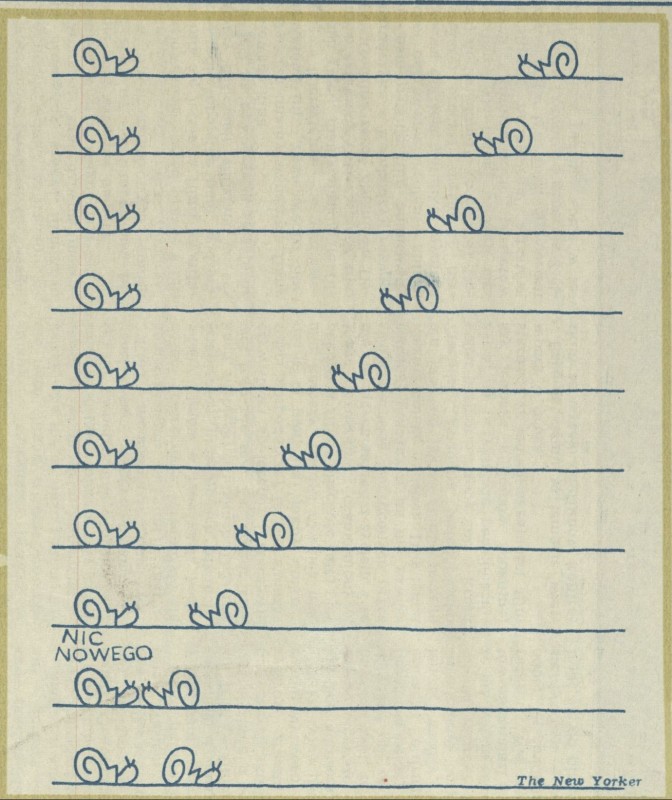 NIC
NOWEGO
The New Yorker